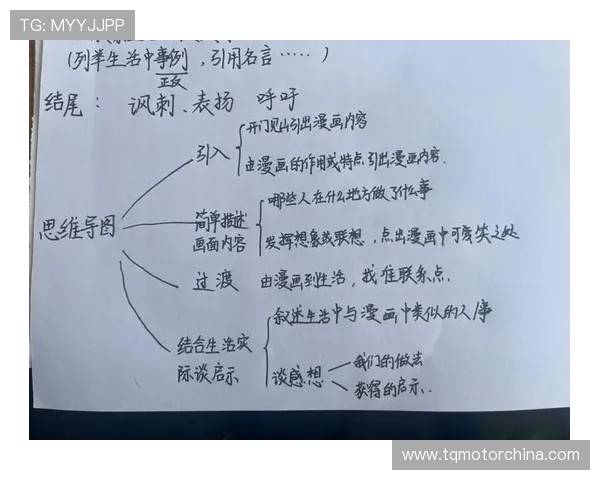 TG: MYYJJPP
(列举生活中事例，引用名言……)
正反
结尾： 讽刺、表扬 呼吁
思维导图
引入
开门见山引出漫画内容
由漫画的作用或特点引出漫画内容.
简单描述
画面内容
哪些人在什么地方做了什么事
发挥想象或联想，点出漫画中可笑之处
过渡 由漫画到生活，找准联系点.
结合生活实
际谈启示
叙述生活中与漫画中类似的人事
谈感想
我们的做法
获得的启示.
www.tqmotorchina.com